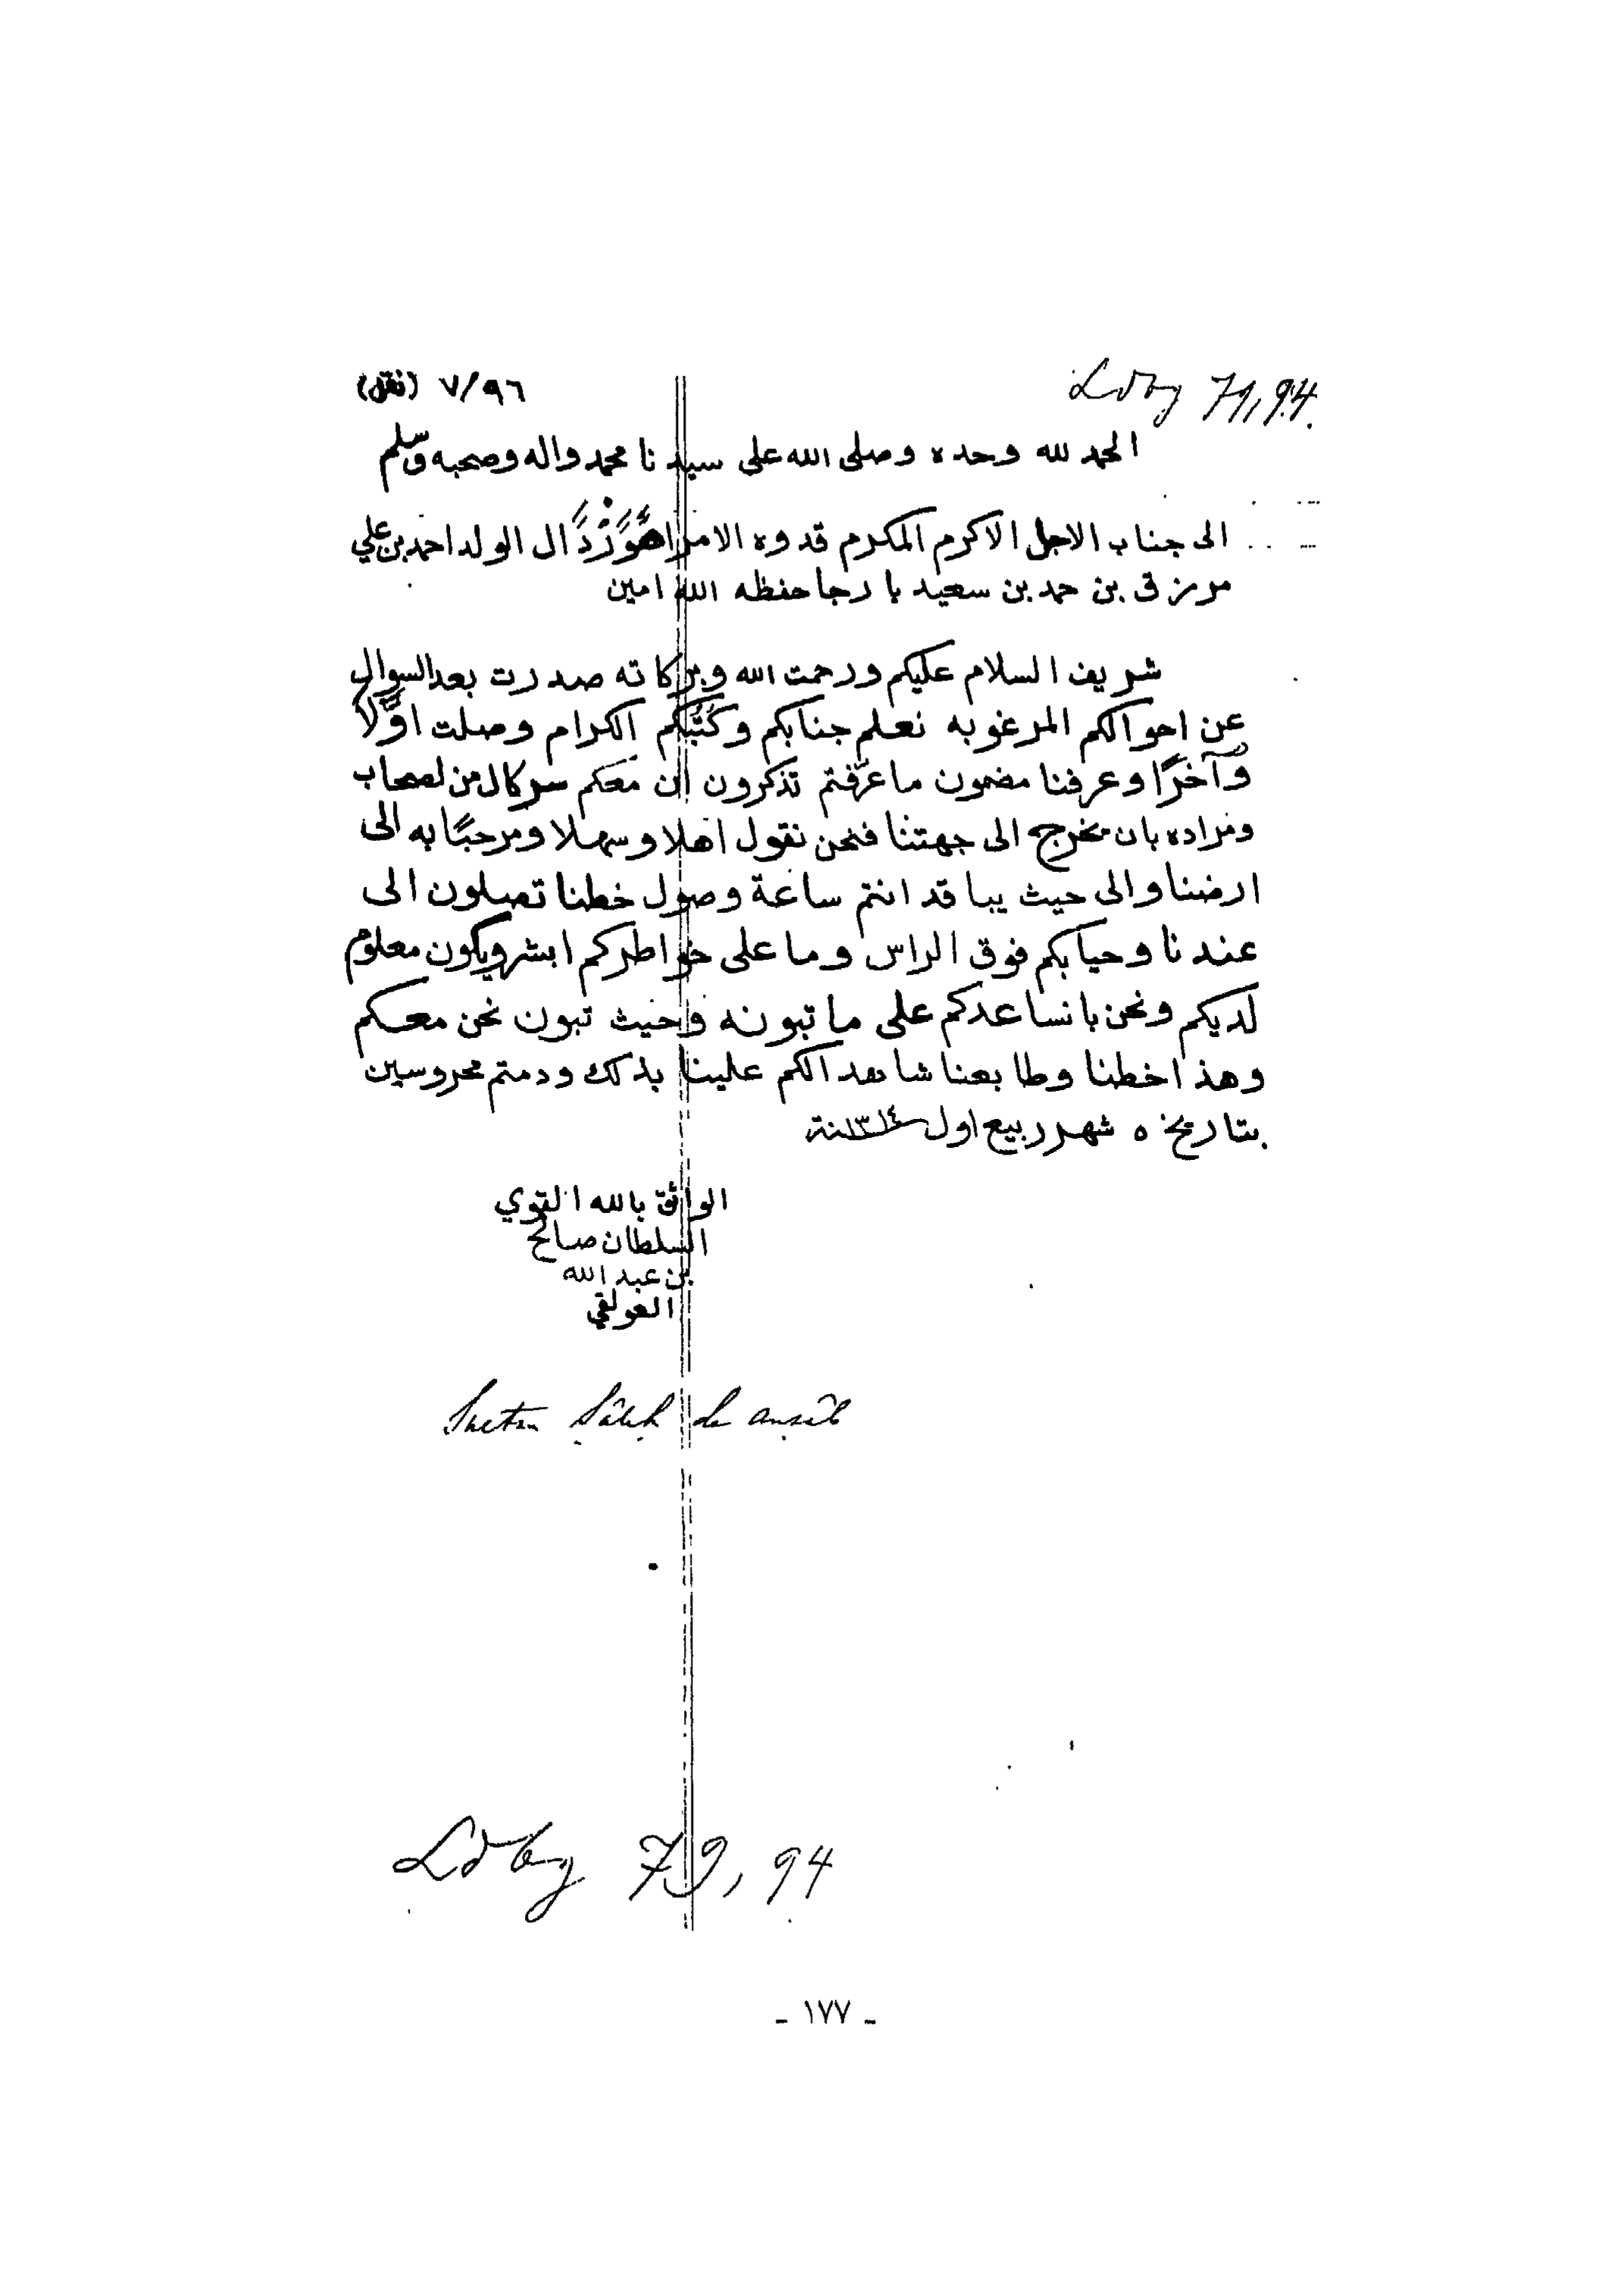 Ldbg 79, 94.
٧/٩٦ (نقل)
الحمد لله وحده وصلى الله على سيدنا محمد واله وصحبه وسلم
الى جناب الاجل الاكرم المكرم قدوه الامرا ال الولد احمد بن علي
مرزق بن حمد بن سعيد بارجا حفظه الله امين
شريف السلام عليكم ورحمت الله وبركاته صدرت بعد السوال
عن احوالكم المرغوبه نعلم جنابكم وكتبكم الكرام وصلت اوّلًا
وآخرًا وعرفنا مضمون ما عرّفتم تذكرون ان معكم سركال من لصحاب
ومراده بان مخرج الى جهتنا فنحن نقول اهلا وسهلا ومرحبًا به الى
ارضنا والى حيث يبا قد انتم ساعة وصول خطنا تصلون الى
عندنا وحيا بكم فوق الراس وما على خواطركم ابشر ويكون معلوم
لديكم ونحن بانساعدكم على ما تبونه وحيث تبون نحن معكم
وهذا خطنا وطابعنا شاهدا لكم علينا بذلك ودمتم محروسين
بتاريخ ٥ شهر ربيع اول ١٣١٤ سنة
الواثق بالله القوي
السلطان صالح
بن عبد الله
العولقي
Sâleh de ansâb
Ldbg 79, 94
- ١٧٧ -